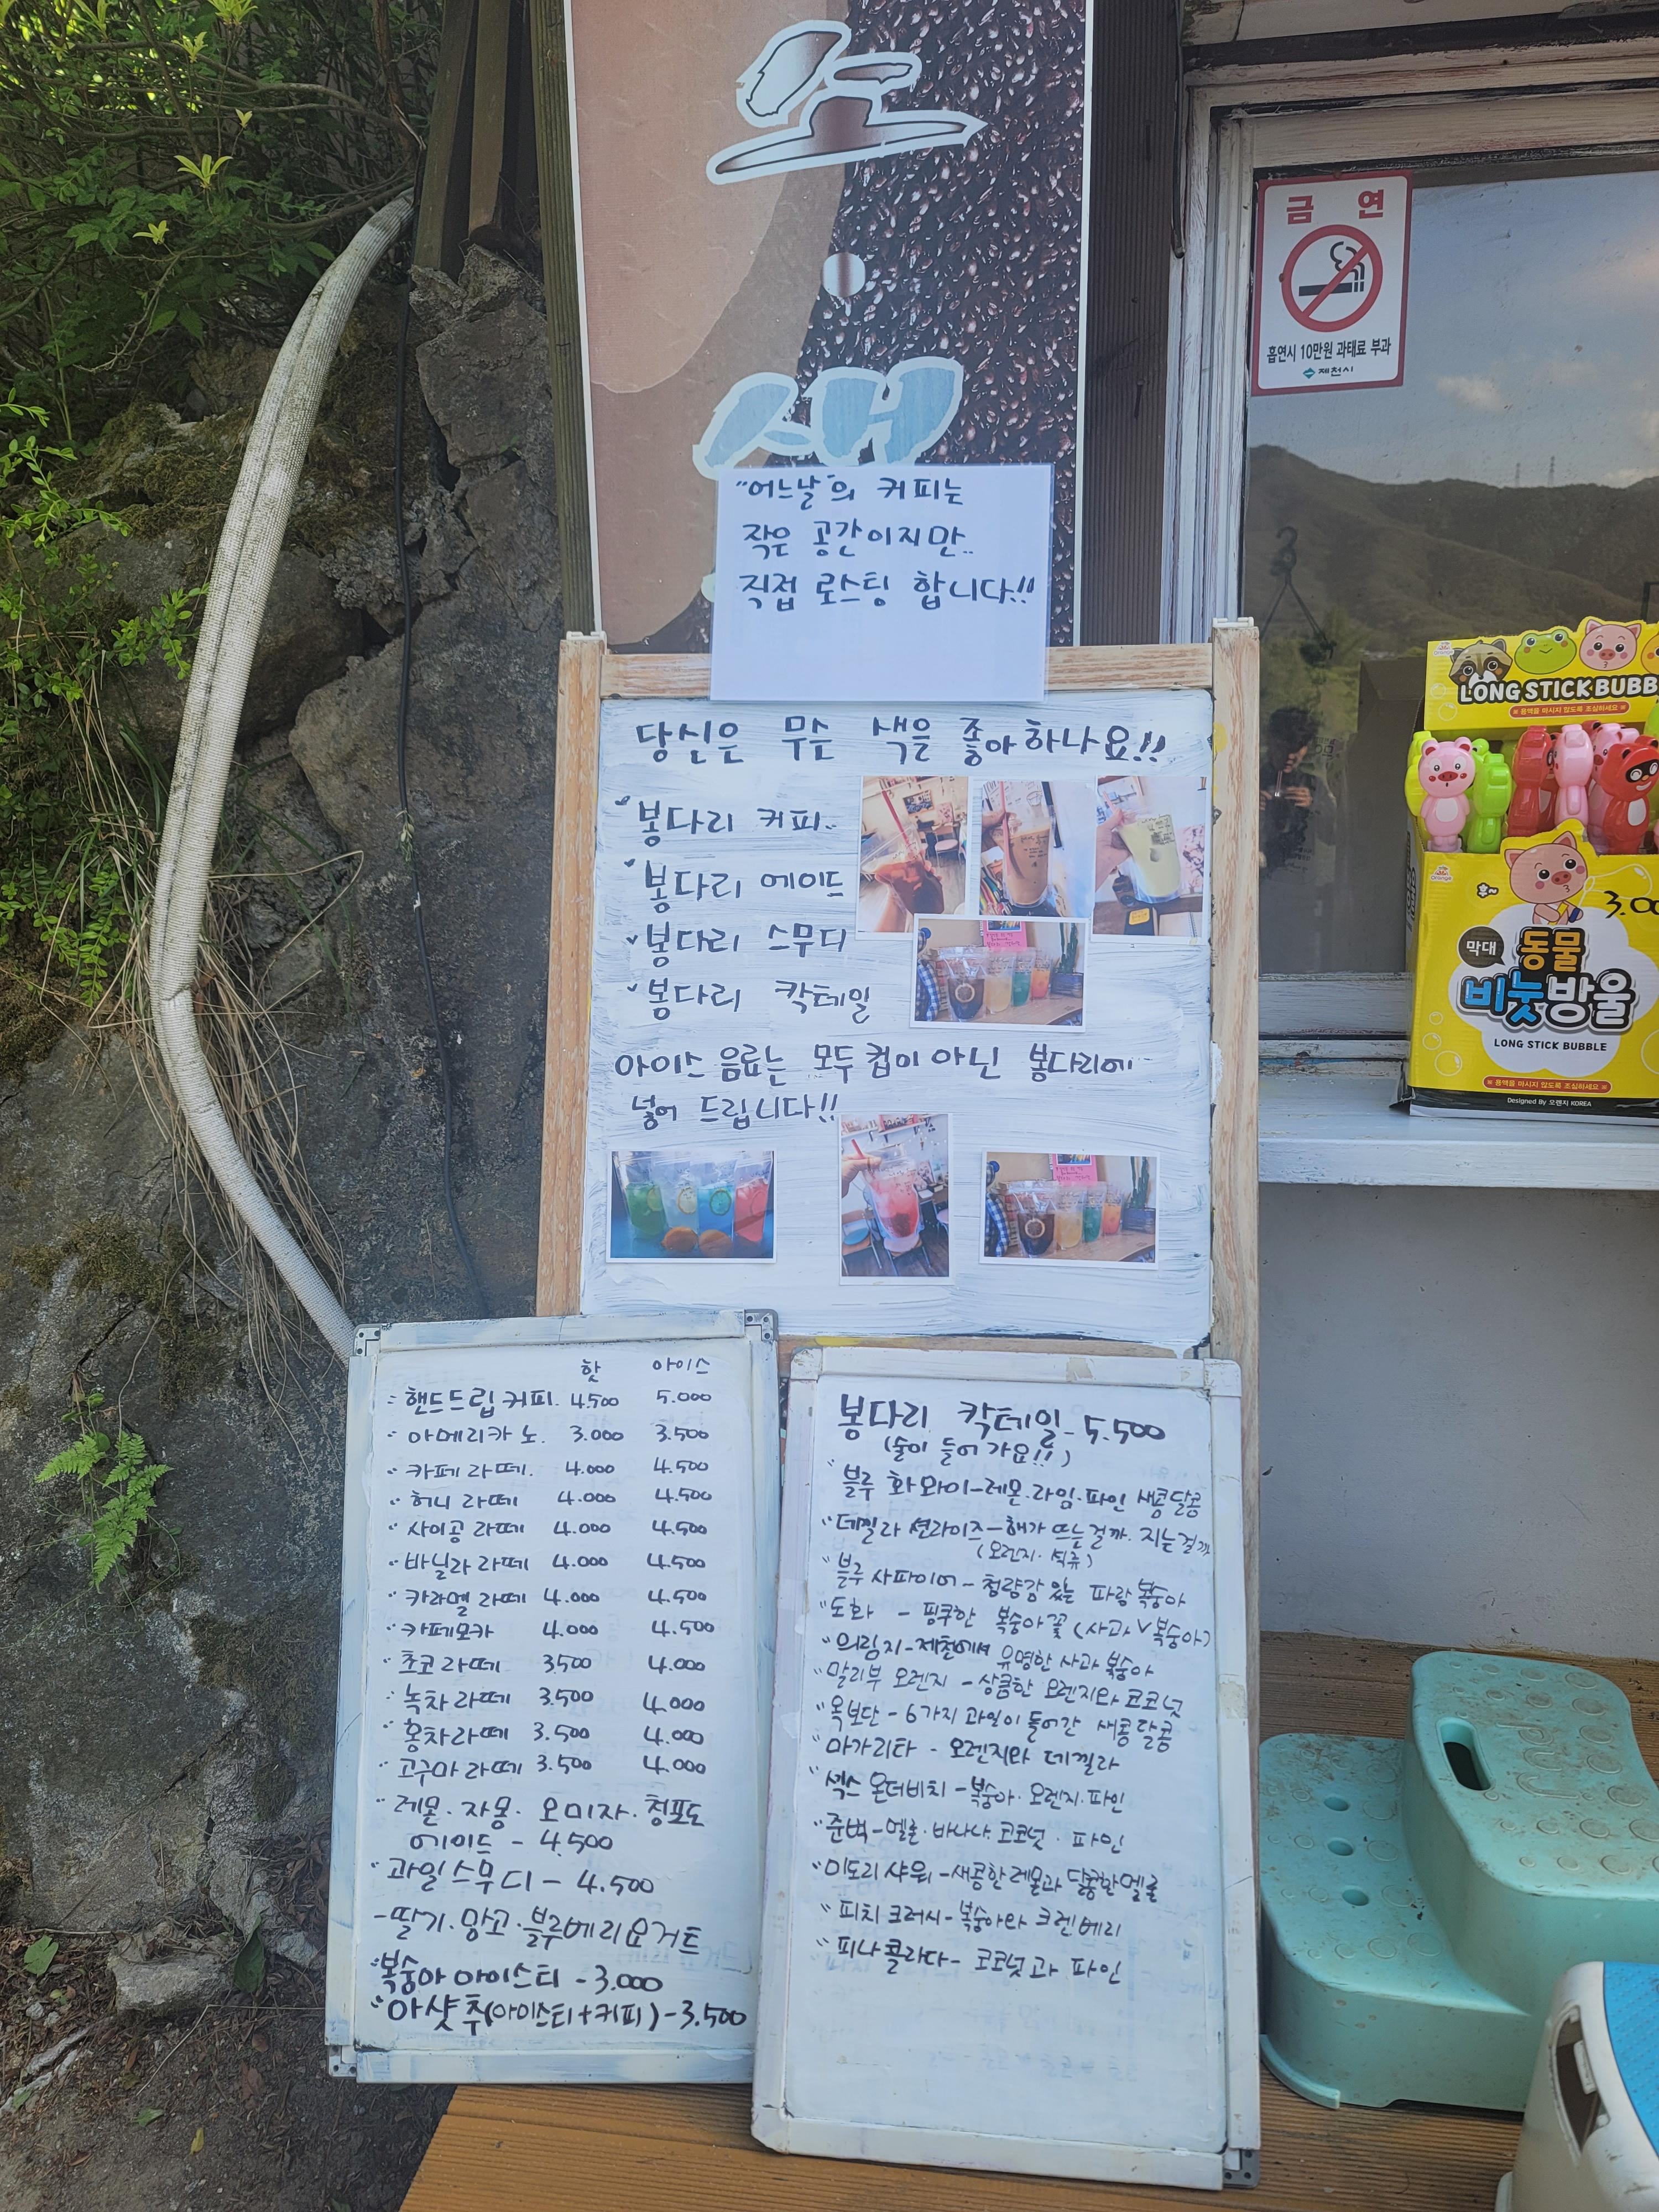 금 연
흡연시 10만원 과태료 부과
제천시
"어느날"의 커피는
작은 공간이지만..
직접 로스팅 합니다!!
당신은 무슨 색을 좋아하나요!!
봉다리 커피..
봉다리 에이드
봉다리 스무디
봉다리 칵테일
아이스 음료는 모두 컵이 아닌 봉다리에
넣어 드립니다!!
핫 아이스
핸드드립 커피. 4.500 5.000
아메리카노. 3.000 3.500
카페라떼. 4.000 4.500
허니 라떼 4.000 4.500
사이공 라떼 4.000 4.500
바닐라 라떼 4.000 4.500
카라멜 라떼 4.000 4.500
카페모카 4.000 4.500
초코 라떼 3.500 4.000
녹차 라떼 3.500 4.000
홍차라떼 3.500 4.000
고구마 라떼 3.500 4.000
레몬·자몽·오미자·청포도
에이드 - 4.500
과일스무디 - 4.500
-딸기·망고·블루베리요거트
복숭아 아이스티 -3.000
아샷추(아이스티+커피)-3.500
봉다리 칵테일 - 5.500
(술이 들어가요!!)
블루 화와이-레몬·라임·파인 새콤달콤
데낄라 션라이즈-해가 뜨는걸까·지는걸까
(오렌지·석류)
블루 사파이어-청량감 있는 파랑 복숭아
도화 - 핑쿠한 복숭아꽃 (사과V복숭아)
의림지-제천에서 유명한 사과 복숭아
말리부 오렌지 -상큼한 오렌지와 코코넛
옥보단 - 6가지 과일이 들어간 새콤달콤
마가리타 - 오렌지와 데낄라
섹스 온더비치 -복숭아·오렌지·파인
준벅-멜론·바나나·코코넛·파인
미도리 샤워-새콤한레몬과 달콤한멜론
피치 크러시-복숭아와 크랜베리
피나콜라다- 코코넛과 파인
LONG STICK BUBB
※용액을 마시지 않도록 조심하세요※
3.00
막대
동물
비눗방울
LONG STICK BUBBLE
※용액을 마시지 않도록 조심하세요※
Designed By 오렌지 KOREA